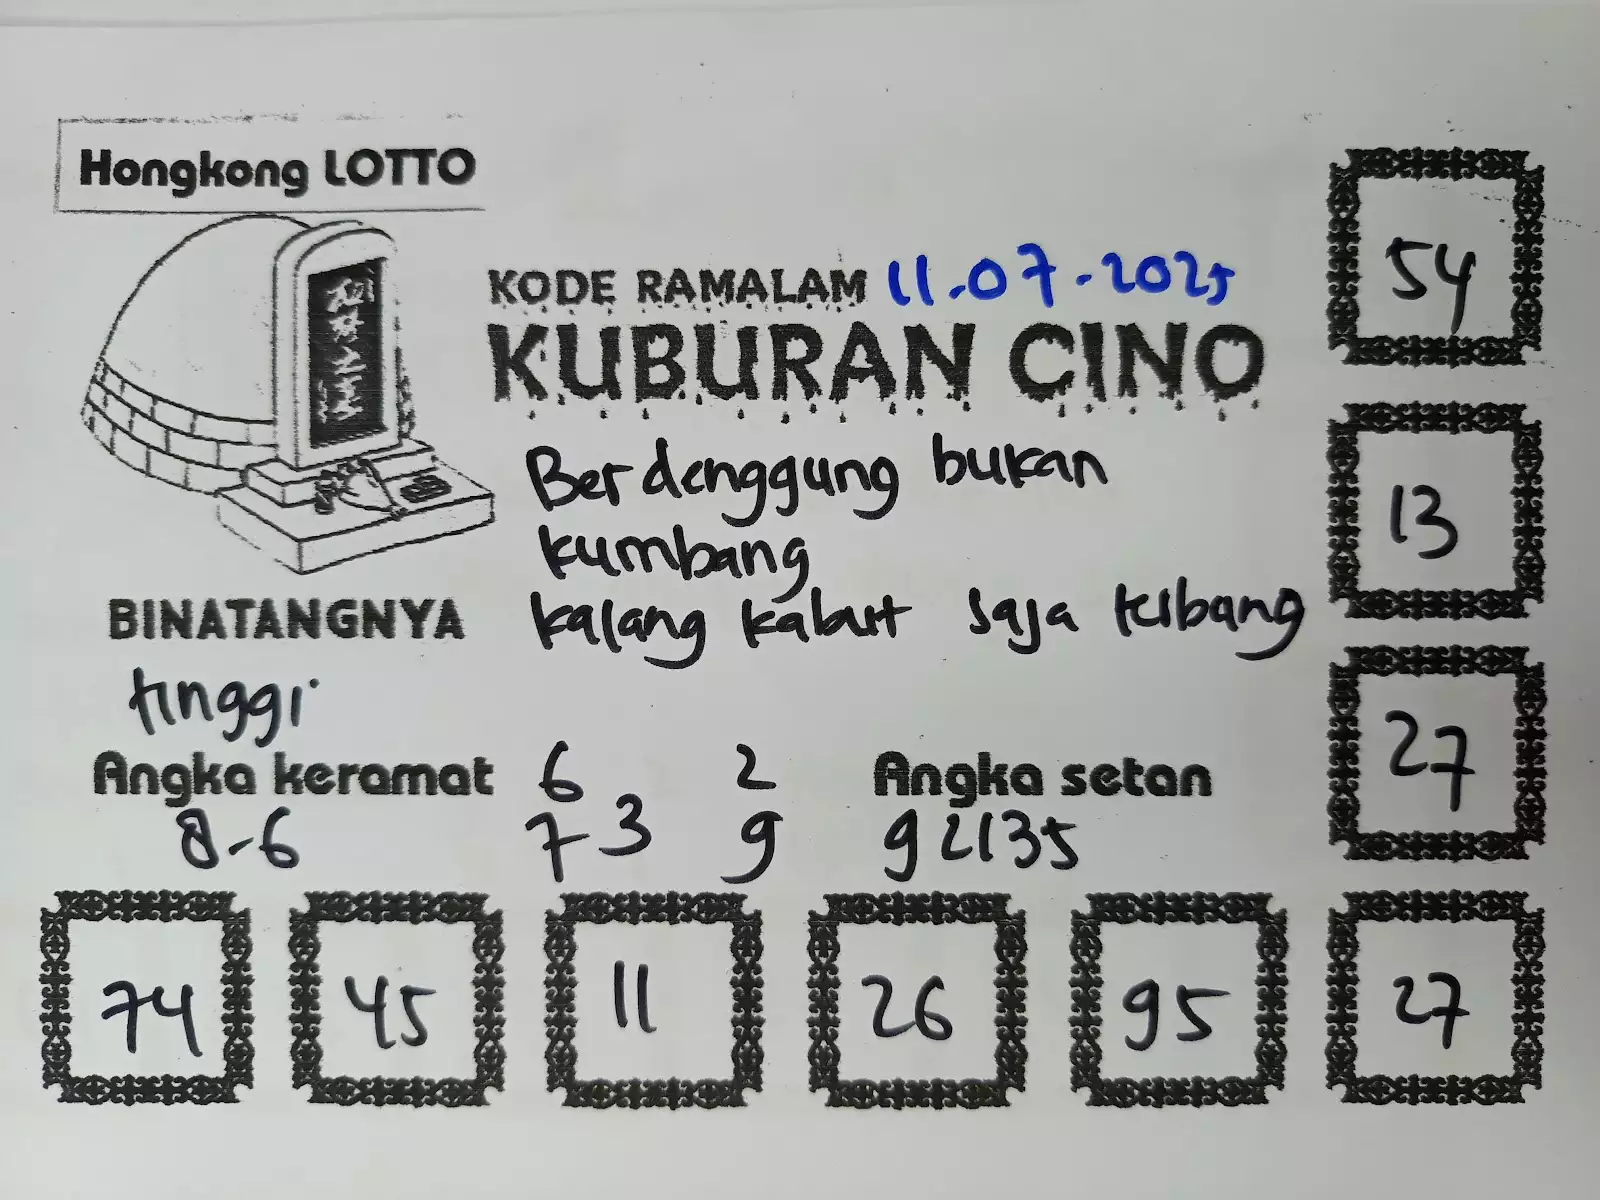 Hongkong LOTTO
KODE RAMALAM 11-07-2025
KUBURAN CINO
Berdenggung bukan
kumbang
kalang kabut saja terbang
BINATANGNYA
tinggi
Angka keramat
8-6
6 2
7 3 9
Angka setan
92135
54
13
27
74 45 11 26 95 27